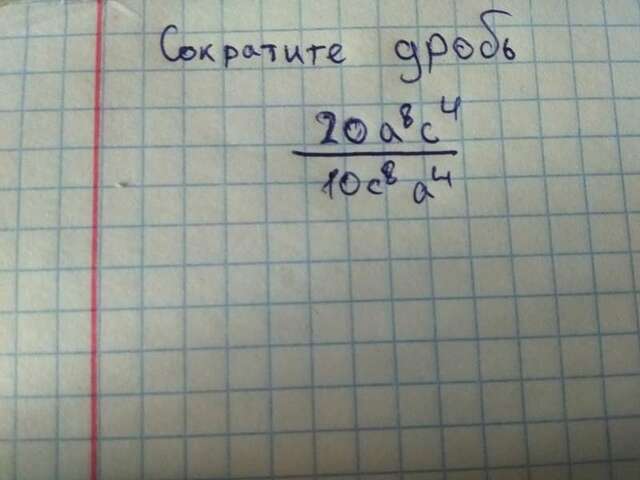 Сократите дробь
20a⁸c⁴
10c⁸a⁴